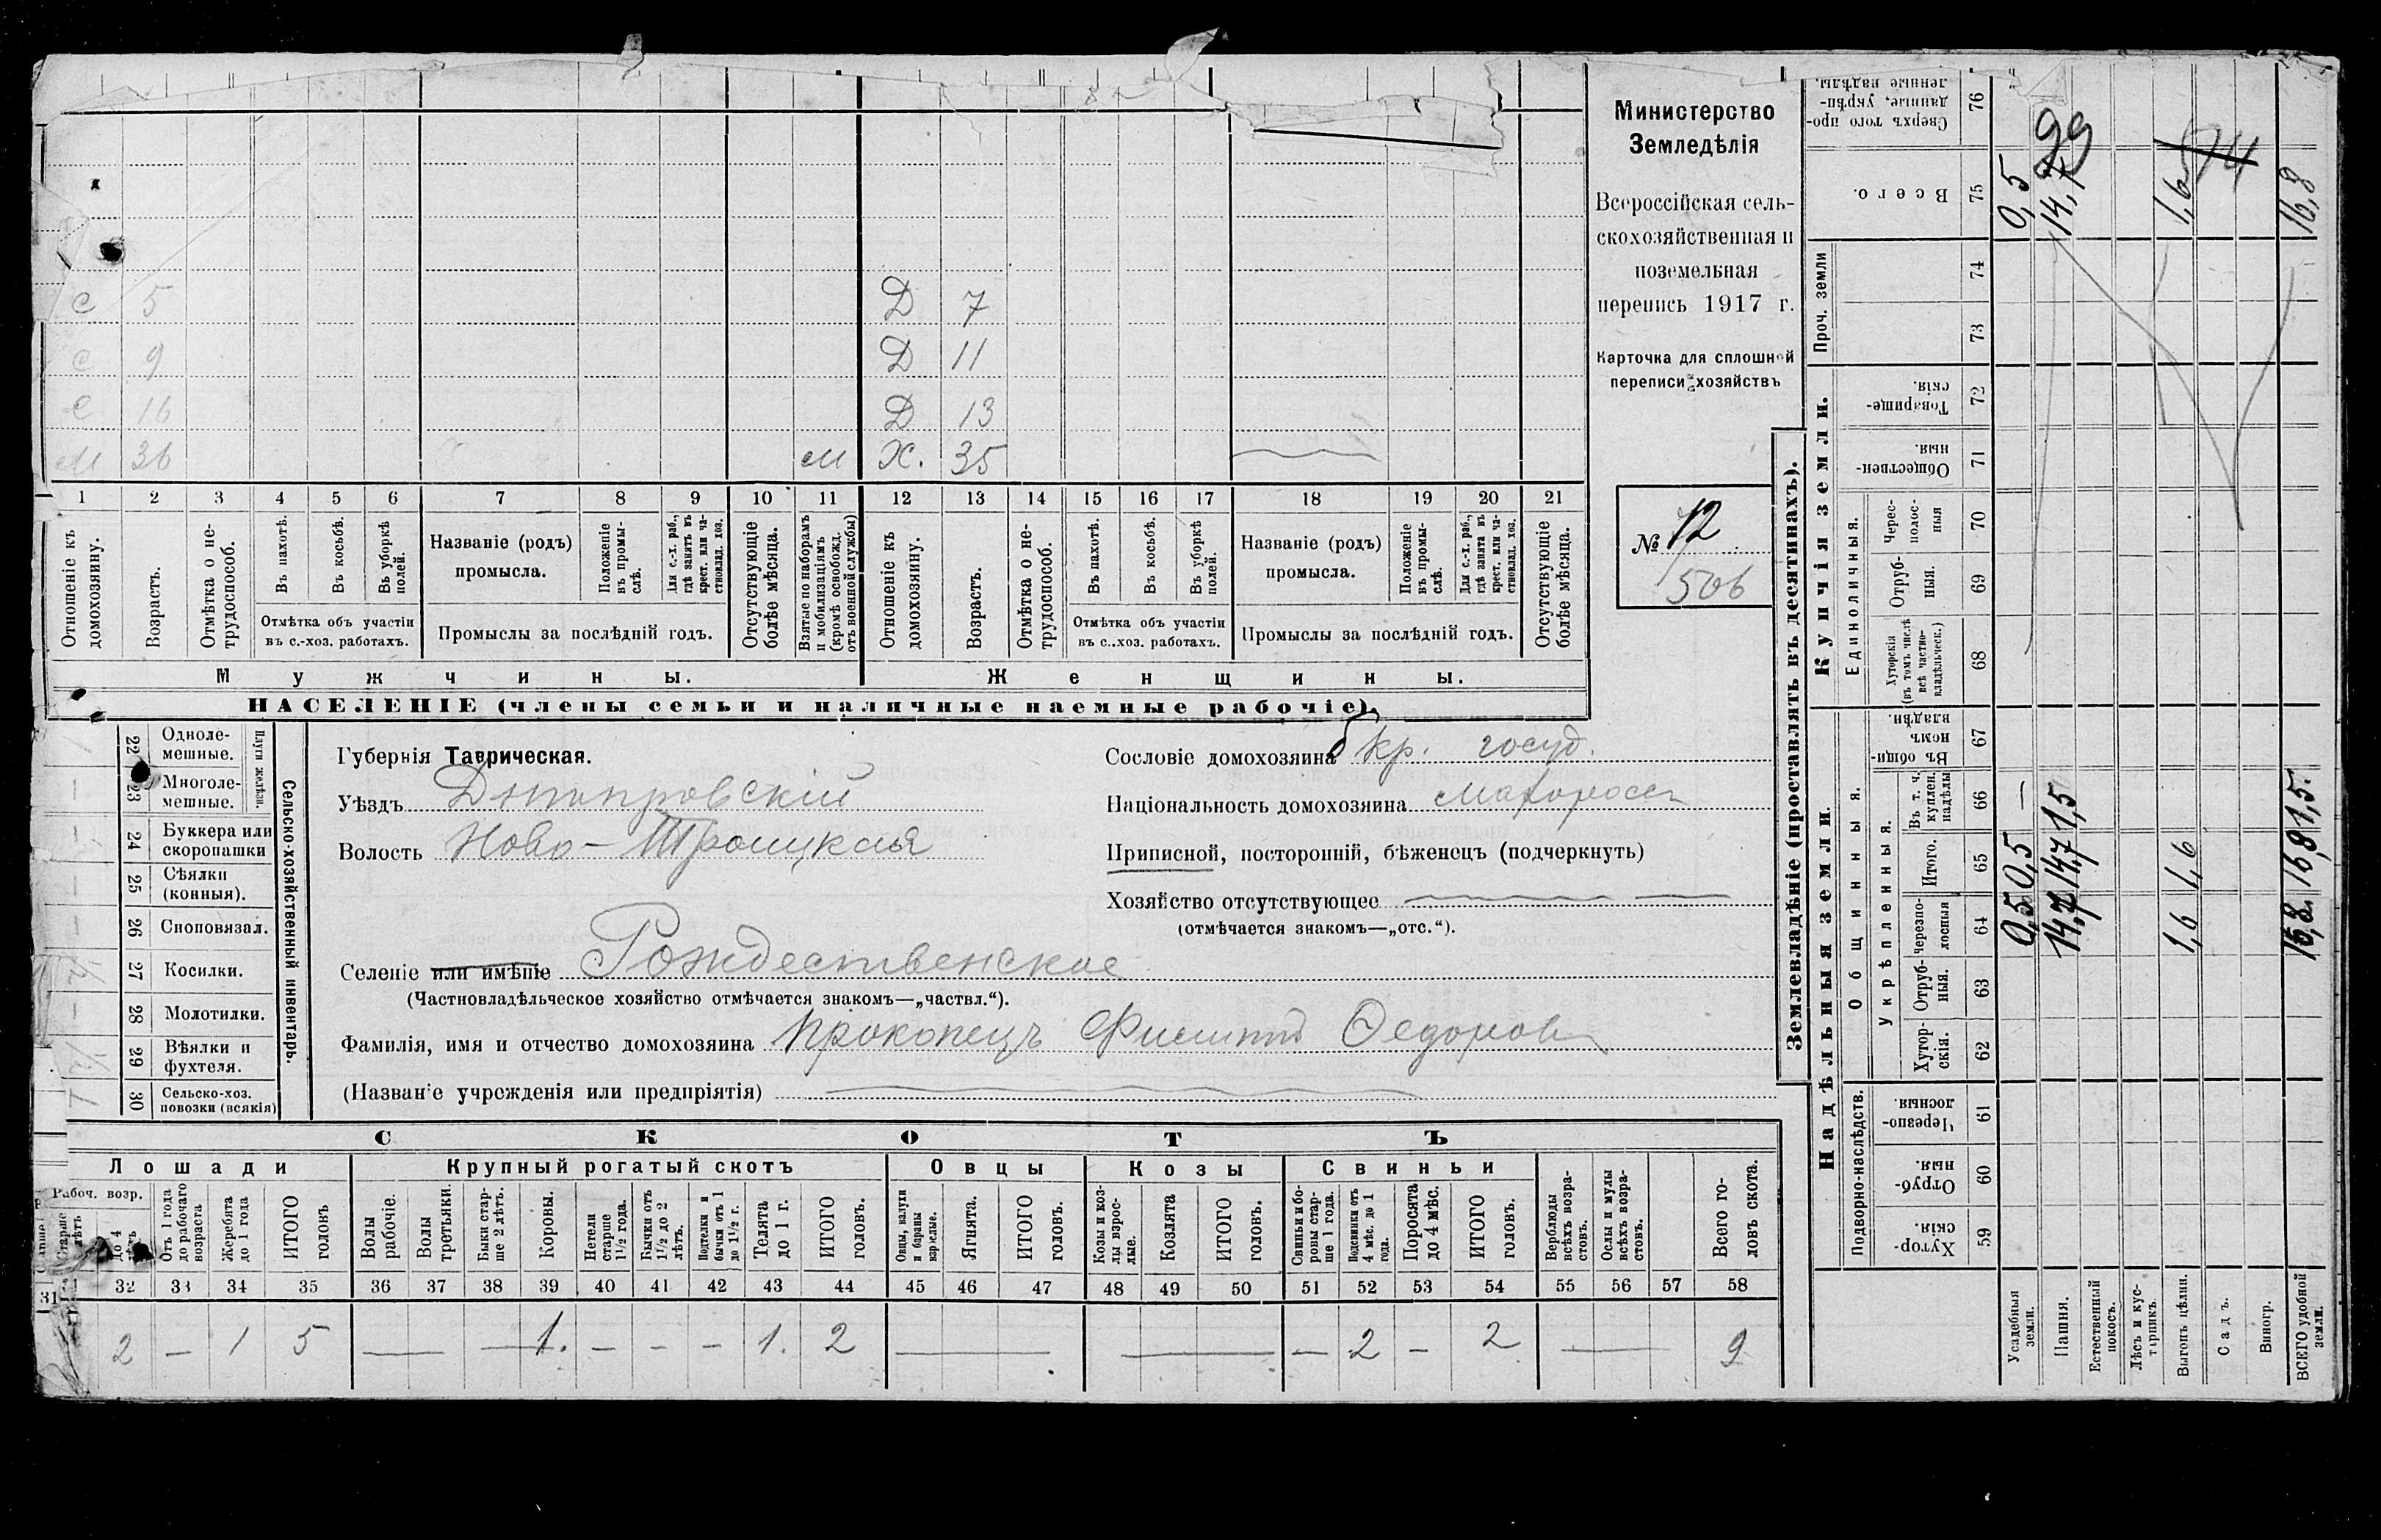 Министерство
Земледѣлія
Всероссійская сель-
скохозяйственная и
поземельная
перепись 1917 г.
Карточка для сплошной
переписи хозяйствъ
№ 12
506
С 5 Д 7
С 9 Д 11
С 16 Д 13
М 36 м Х. 35
1 2 3 4 5 6 7 8 9 10 11 12 13 14 15 16 17 18 19 20 21
Отношеніе къ домохозяину.
Возрастъ.
Отмѣтка о не-трудоспособ.
Въ пахотѣ.
Въ косьбѣ.
Въ уборкѣ полей.
Отмѣтка объ участіи
въ с.-хоз. работахъ.
Названіе (родъ)
промысла.
Положеніе въ промы-слѣ.
Для с.-х. раб., гдѣ занятъ въ крест. или ча-стновлад. хоз.
Промыслы за послѣдній годъ.
Отсутствующіе болѣе мѣсяца.
Взятые по наборамъ и мобилизаціямъ (кромѣ освобожд. отъ военной службы)
Отношеніе къ домохозяину.
Возрастъ.
Отмѣтка о не-трудоспособ.
Въ пахотѣ.
Въ косьбѣ.
Въ уборкѣ полей.
Отмѣтка объ участіи
въ с..хоз. работахъ.
Названіе (родъ)
промысла.
Положеніе въ промы-слѣ.
Для с.-х. раб., гдѣ занята въ крест. или ча-стновлад. хоз.
Промыслы за послѣдній годъ.
Отсутствующіе болѣе мѣсяца.
Мужчины. Женщины.
НАСЕЛЕНІЕ (члены семьи и наличные наемные рабочіе).
Сельско-хозяйственный инвентарь.
Плуги желѣзн.
22 Одноле-мешные.
23 Многоле-мешные.
24 Буккера или скоропашки
25 Сѣялки (конныя).
26 Сноповязал.
27 Косилки.
28 Молотилки.
29 Вѣялки и фухтеля.
30 Сельско-хоз. повозки (всякія)
Губернія Таврическая.
Уѣздъ Днѣпровскій
Волость Ново-Троицкая
Селеніе или имѣніе Рождественское
(Частновладѣльческое хозяйство отмѣчается знакомъ—„частвл.“).
Фамилія, имя и отчество домохозяина Прокопецъ Филиппъ Федоров
(Названіе учрежденія или предпріятія)
Сословіе домохозяина б кр. госуд.
Національность домохозяина Малоросс
Приписной, посторонній, бѣженецъ (подчеркнуть)
Хозяйство отсутствующее
(отмѣчается знакомъ—„отс.“).
СКОТЪ
Лошади Крупный рогатый скотъ Овцы Козы Свиньи
Рабоч. возр.
Старше 4 лѣтъ
до 4 лѣтъ
Отъ 1 года до рабочаго возраста
Жеребята до 1 года
ИТОГО головъ
Волы рабочіе.
Волы третьяки.
Быки стар-ше 2 лѣтъ.
Коровы.
Нетели старше 1½ года.
Бычки отъ 1½ до 2 лѣтъ.
Подтелки и бычки отъ 1 до 1½ г.
Телята до 1 г.
ИТОГО головъ.
Овцы, валухи и бараны взрослые.
Ягнята.
ИТОГО головъ.
Козы и коз-лы взрос-лые.
Козлята
ИТОГО головъ.
Свиньи и бо-ровы стар-ше 1 года.
Подсвинки отъ 4 мѣс. до 1 года.
Поросята до 4 мѣс.
ИТОГО головъ.
Верблюды всѣхъ возра-стовъ.
Ослы и мулы всѣхъ возра-стовъ.
Всего го-ловъ скота.
31 32 33 34 35 36 37 38 39 40 41 42 43 44 45 46 47 48 49 50 51 52 53 54 55 56 57 58
2 — 1 5 — — 1. — — — 1. 2 — — — 2 — 2 — 9
Землевладѣніе (проставлять въ десятинахъ).
Надѣльныя земли.
Купчія земли.
Проч. земли
Подворно-наслѣдств.
Общинныя.
Укрѣпленныя.
Единоличныя.
Хутор-скія. 59
Отруб-ныя. 60
Черезпо-лосныя. 61
Хутор-скія. 62
Отруб-ныя. 63
Черезпо-лосныя 64
Итого. 65
Въ т. ч. куплен. надѣлы 66
Въ общин-номъ владѣн. 67
Хуторскія (въ томъ числѣ всѣ частно-владѣльческ.) 68
Отруб-ныя. 69
Черес-полос-ныя 70
Обществен-ныя 71
Товарище-скія. 72
73
74
Всего. 75
Сверхъ того про-данные, укрѣп-ленные надѣлы. 76
Усадебныя земли. 0,5 0,5 — 0,5
Пашня. 14,7 14,7 1,5 14,7 99
Естественный покосъ.
Лѣсъ и кус-тарникъ
Выгонъ цѣлин. 1,6 1,6 1,6 74
Садъ.
Виногр.
ВСЕГО удобной земли. 16,8 16,8 1,5. 16,8